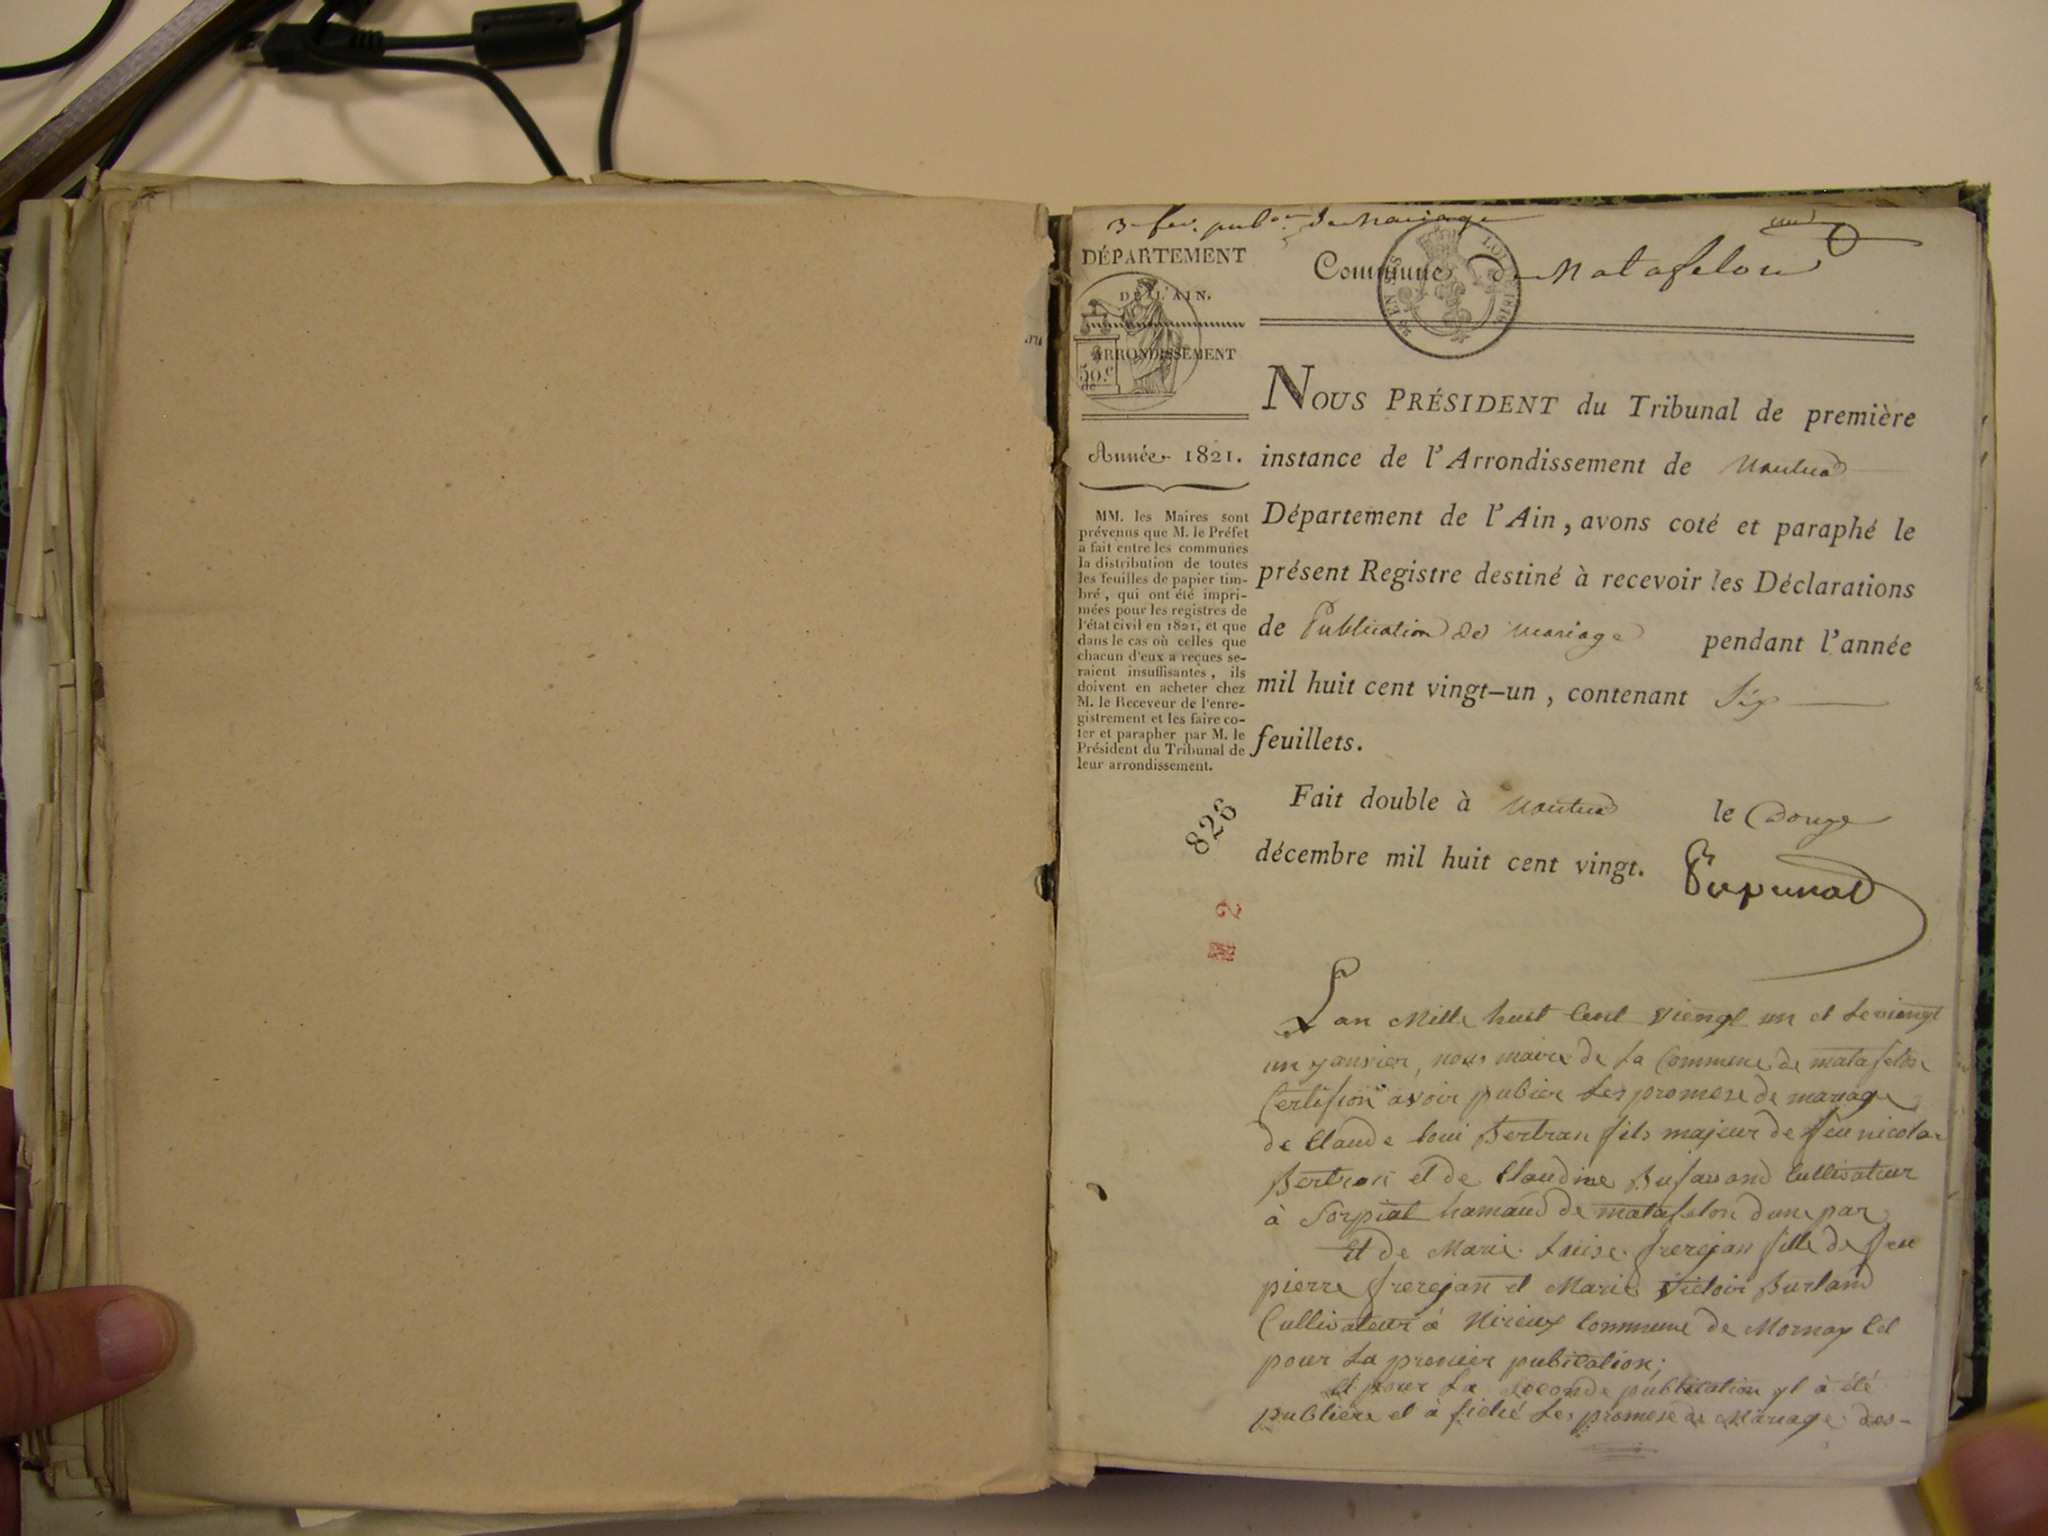 3e feu. pubon de Mariage
un
DÉPARTEMENT
DE L'AIN.
ARRONDISSEMENT
50.c
Année 1821.
MM. les Maires sont
prévenus que M. le Préfet
a fait entre les communes
la distribution de toutes
les feuilles de papier tim-
bré, qui ont été impri-
mées pour les registres de
l'état civil en 1821, et que
dans le cas où celles que
chacun d'eux a reçues se-
raient insuffisantes, ils
doivent en acheter chez
M. le Receveur de l'enre-
gistrement et les faire co-
ter et parapher par M. le
Président du Tribunal de
leur arrondissement.
826
2
Commune de Matafelon
25 EN SUS
LOI 1816
NOUS PRÉSIDENT du Tribunal de première
instance de l'Arrondissement de Nantua
Département de l'Ain, avons coté et paraphé le
présent Registre destiné à recevoir les Déclarations
de Publication de Mariage pendant l'année
mil huit cent vingt-un, contenant Six
feuillets.
Fait double à Nantua le Douze
décembre mil huit cent vingt.
Lan Mille huit Cent viengt un et le viengt
un janvier, nous maire de la Commune de matafelon
Certifion avoir pubier les promese de mariage
de Claude loui Bertran fils majeur de feu nicola
Bertran et de Claudine Bufavand Cultivateur
à Corpiat hamaud de matafelon dune par
Et de Marie Louise frerejan fille de feu
pierre frerejan et Marie Victoir Burland
Cultivateur à Nirieux Commune de Mornay Cet
pour la premier pubication;
Et pour la seconde publication yl à été
publiere et à fiché les promese de Mariage des-